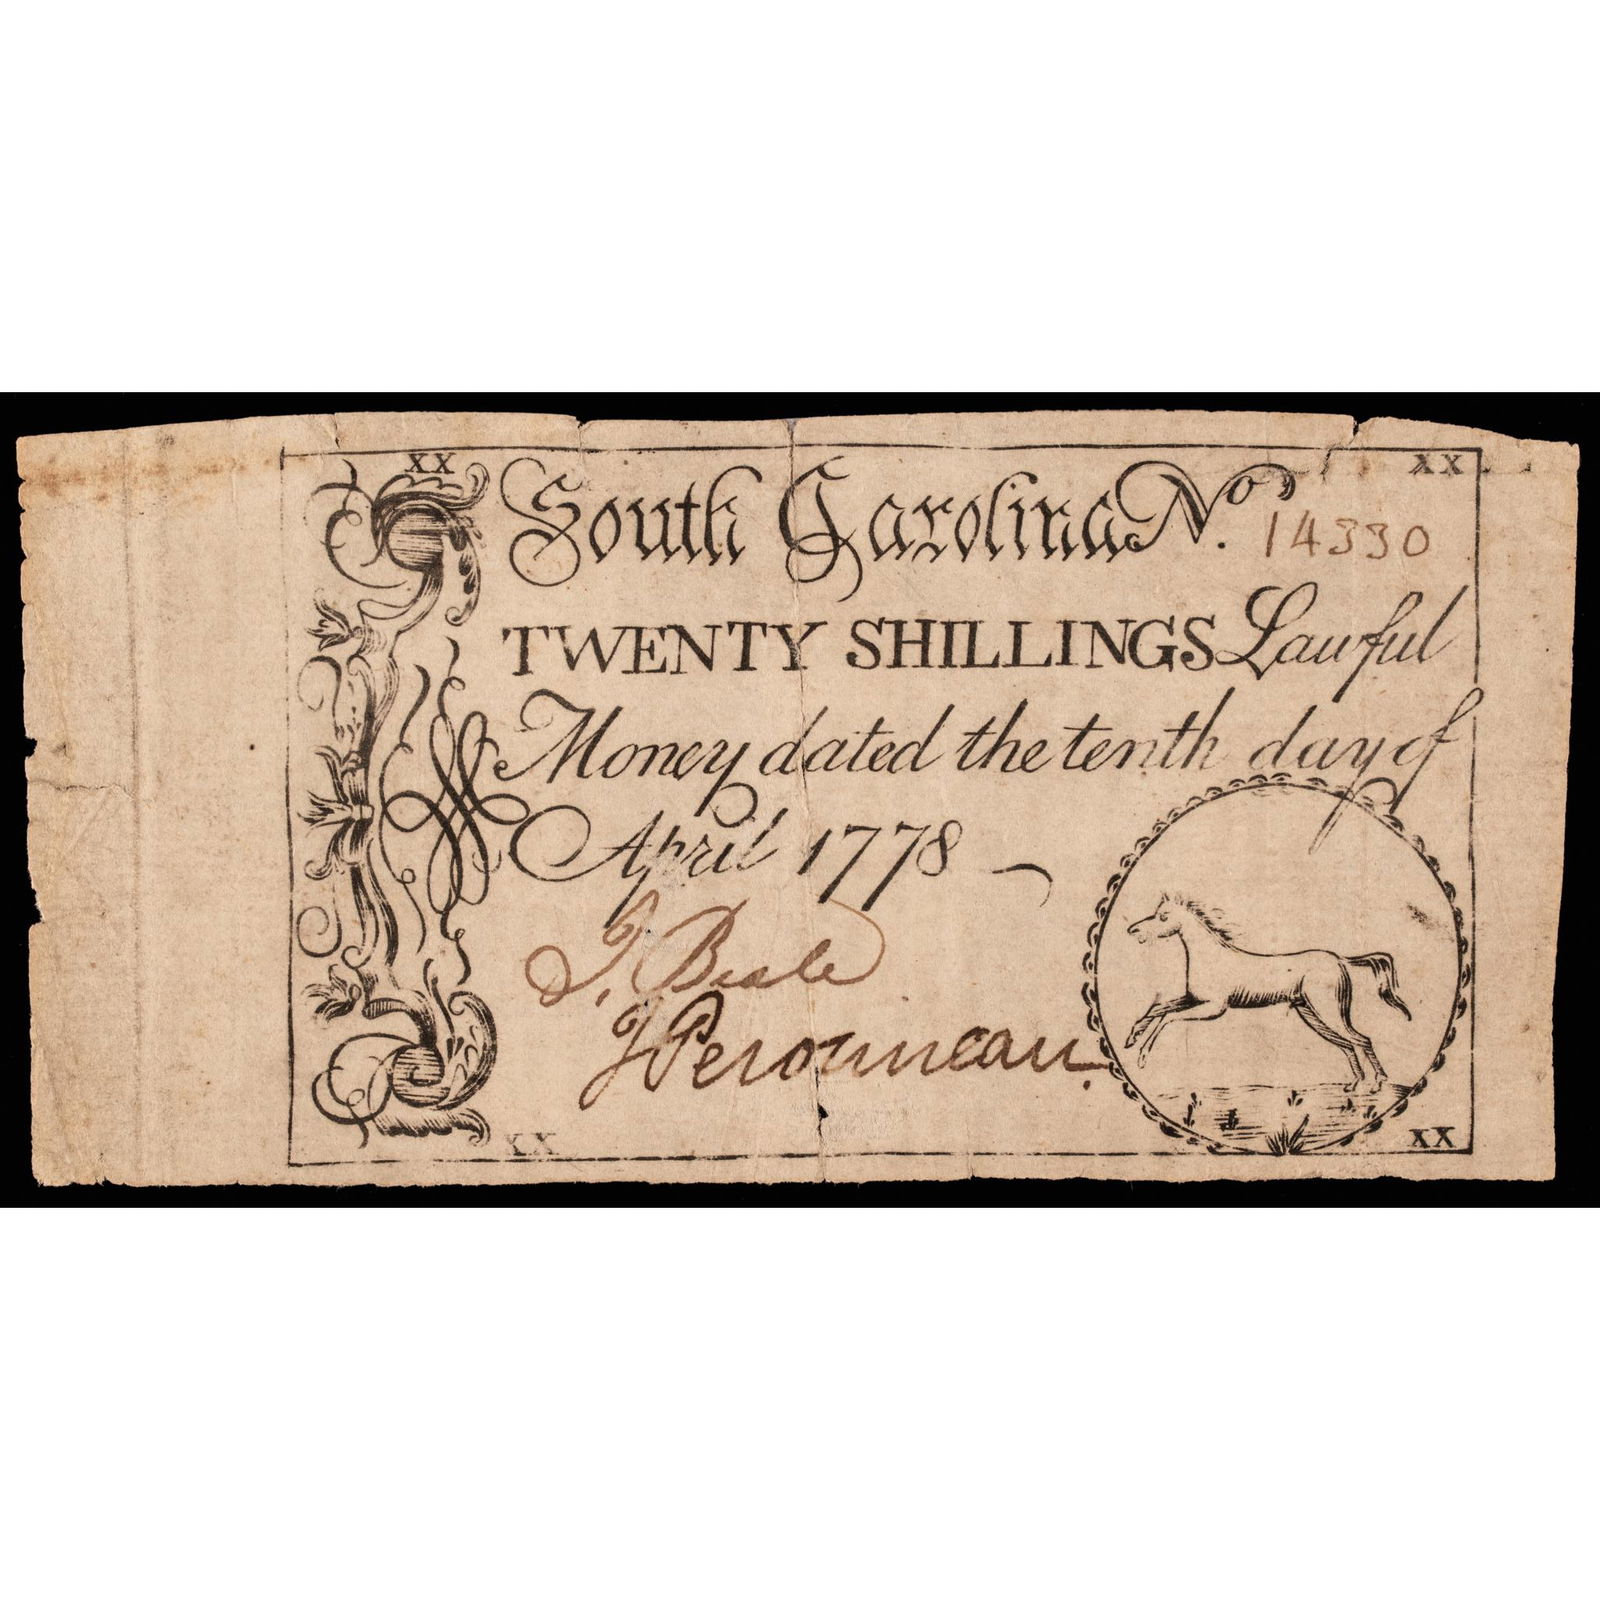 XX XX
South Carolina No. 14330
TWENTY SHILLINGS Lawful
Money dated the tenth day of
April 1778
J. Beale
J Peronneau.
XX XX